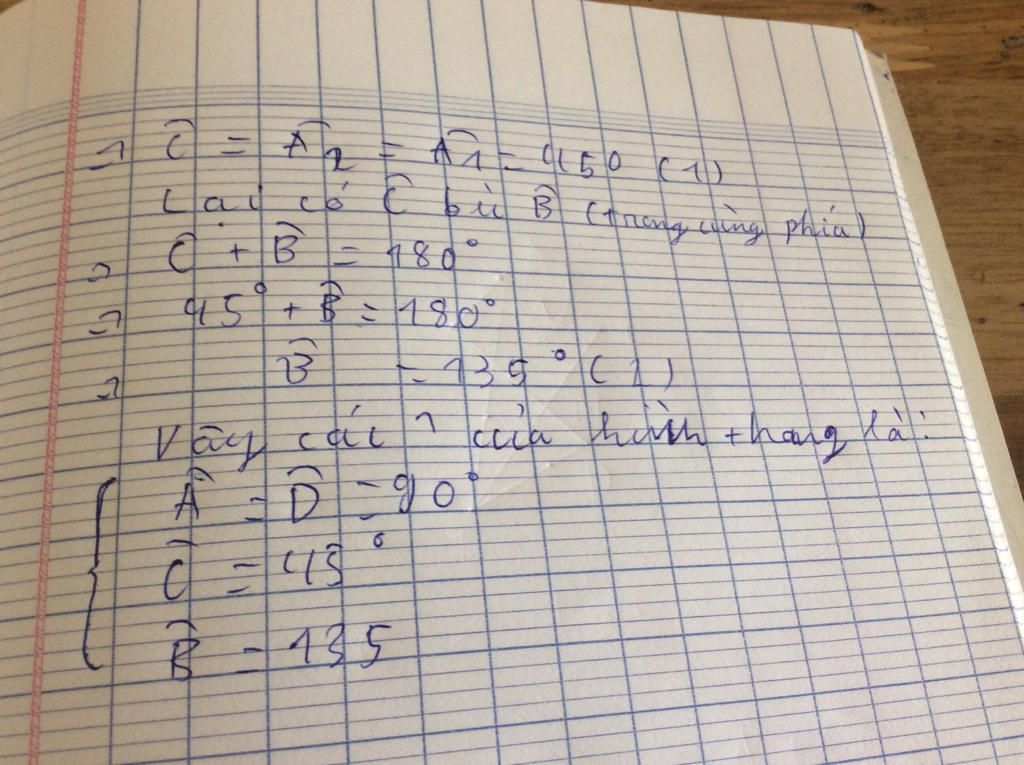 ⇒ Ĉ = Â₂ = Â₁ = 45° (1)
Lại có Ĉ bù B̂ (trong cùng phía)
⇒ Ĉ + B̂ = 180°
⇒ 45° + B̂ = 180°
⇒ B̂ = 135° (2)
Vậy các ^ của hình thang là:
Â = D̂ = 90°
Ĉ = 45°
B̂ = 135